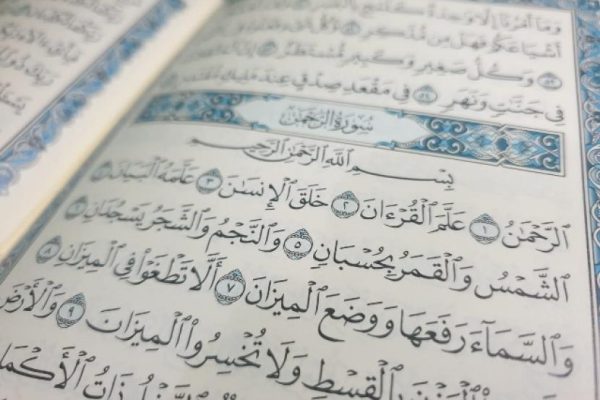 وَمَآ أَمۡرُنَآ إِلَّا وَٰحِدَةٞ كَلَمۡحِۭ بِٱلۡبَصَرِ
أَشۡيَاعَكُمۡ فَهَلۡ مِن مُّدَّكِرٖ
وَكُلُّ صَغِيرٖ وَكَبِيرٖ مُّسۡتَطَرٌ
فِي جَنَّٰتٖ وَنَهَرٖ ٥٤ فِي مَقۡعَدِ صِدۡقٍ عِندَ مَلِيكٖ مُّقۡتَدِرِۭ
سُورَةُ الرَّحۡمَٰن
بِسۡمِ ٱللَّهِ ٱلرَّحۡمَٰنِ ٱلرَّحِيمِ
ٱلرَّحۡمَٰنُ ١ عَلَّمَ ٱلۡقُرۡءَانَ ٢ خَلَقَ ٱلۡإِنسَٰنَ ٣ عَلَّمَهُ ٱلۡبَيَانَ ٤
ٱلشَّمۡسُ وَٱلۡقَمَرُ بِحُسۡبَانٖ ٥ وَٱلنَّجۡمُ وَٱلشَّجَرُ يَسۡجُدَانِ ٦
وَٱلسَّمَآءَ رَفَعَهَا وَوَضَعَ ٱلۡمِيزَانَ ٧ أَلَّا تَطۡغَوۡاْ فِي ٱلۡمِيزَانِ ٨
ٱلۡوَزۡنَ بِٱلۡقِسۡطِ وَلَا تُخۡسِرُواْ ٱلۡمِيزَانَ ٩ وَٱلۡأَرۡضَ
ذَاتُ ٱلۡأَكۡمَامِ